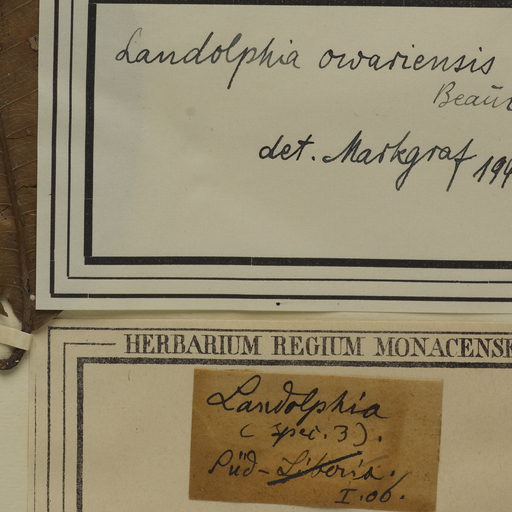 Landolphia owariensis
Beauv
det. Markgraf 194
HERBARIUM REGIUM MONACENSE
Landolphia
(spec. 3).
Süd-Liberia.
I.06.